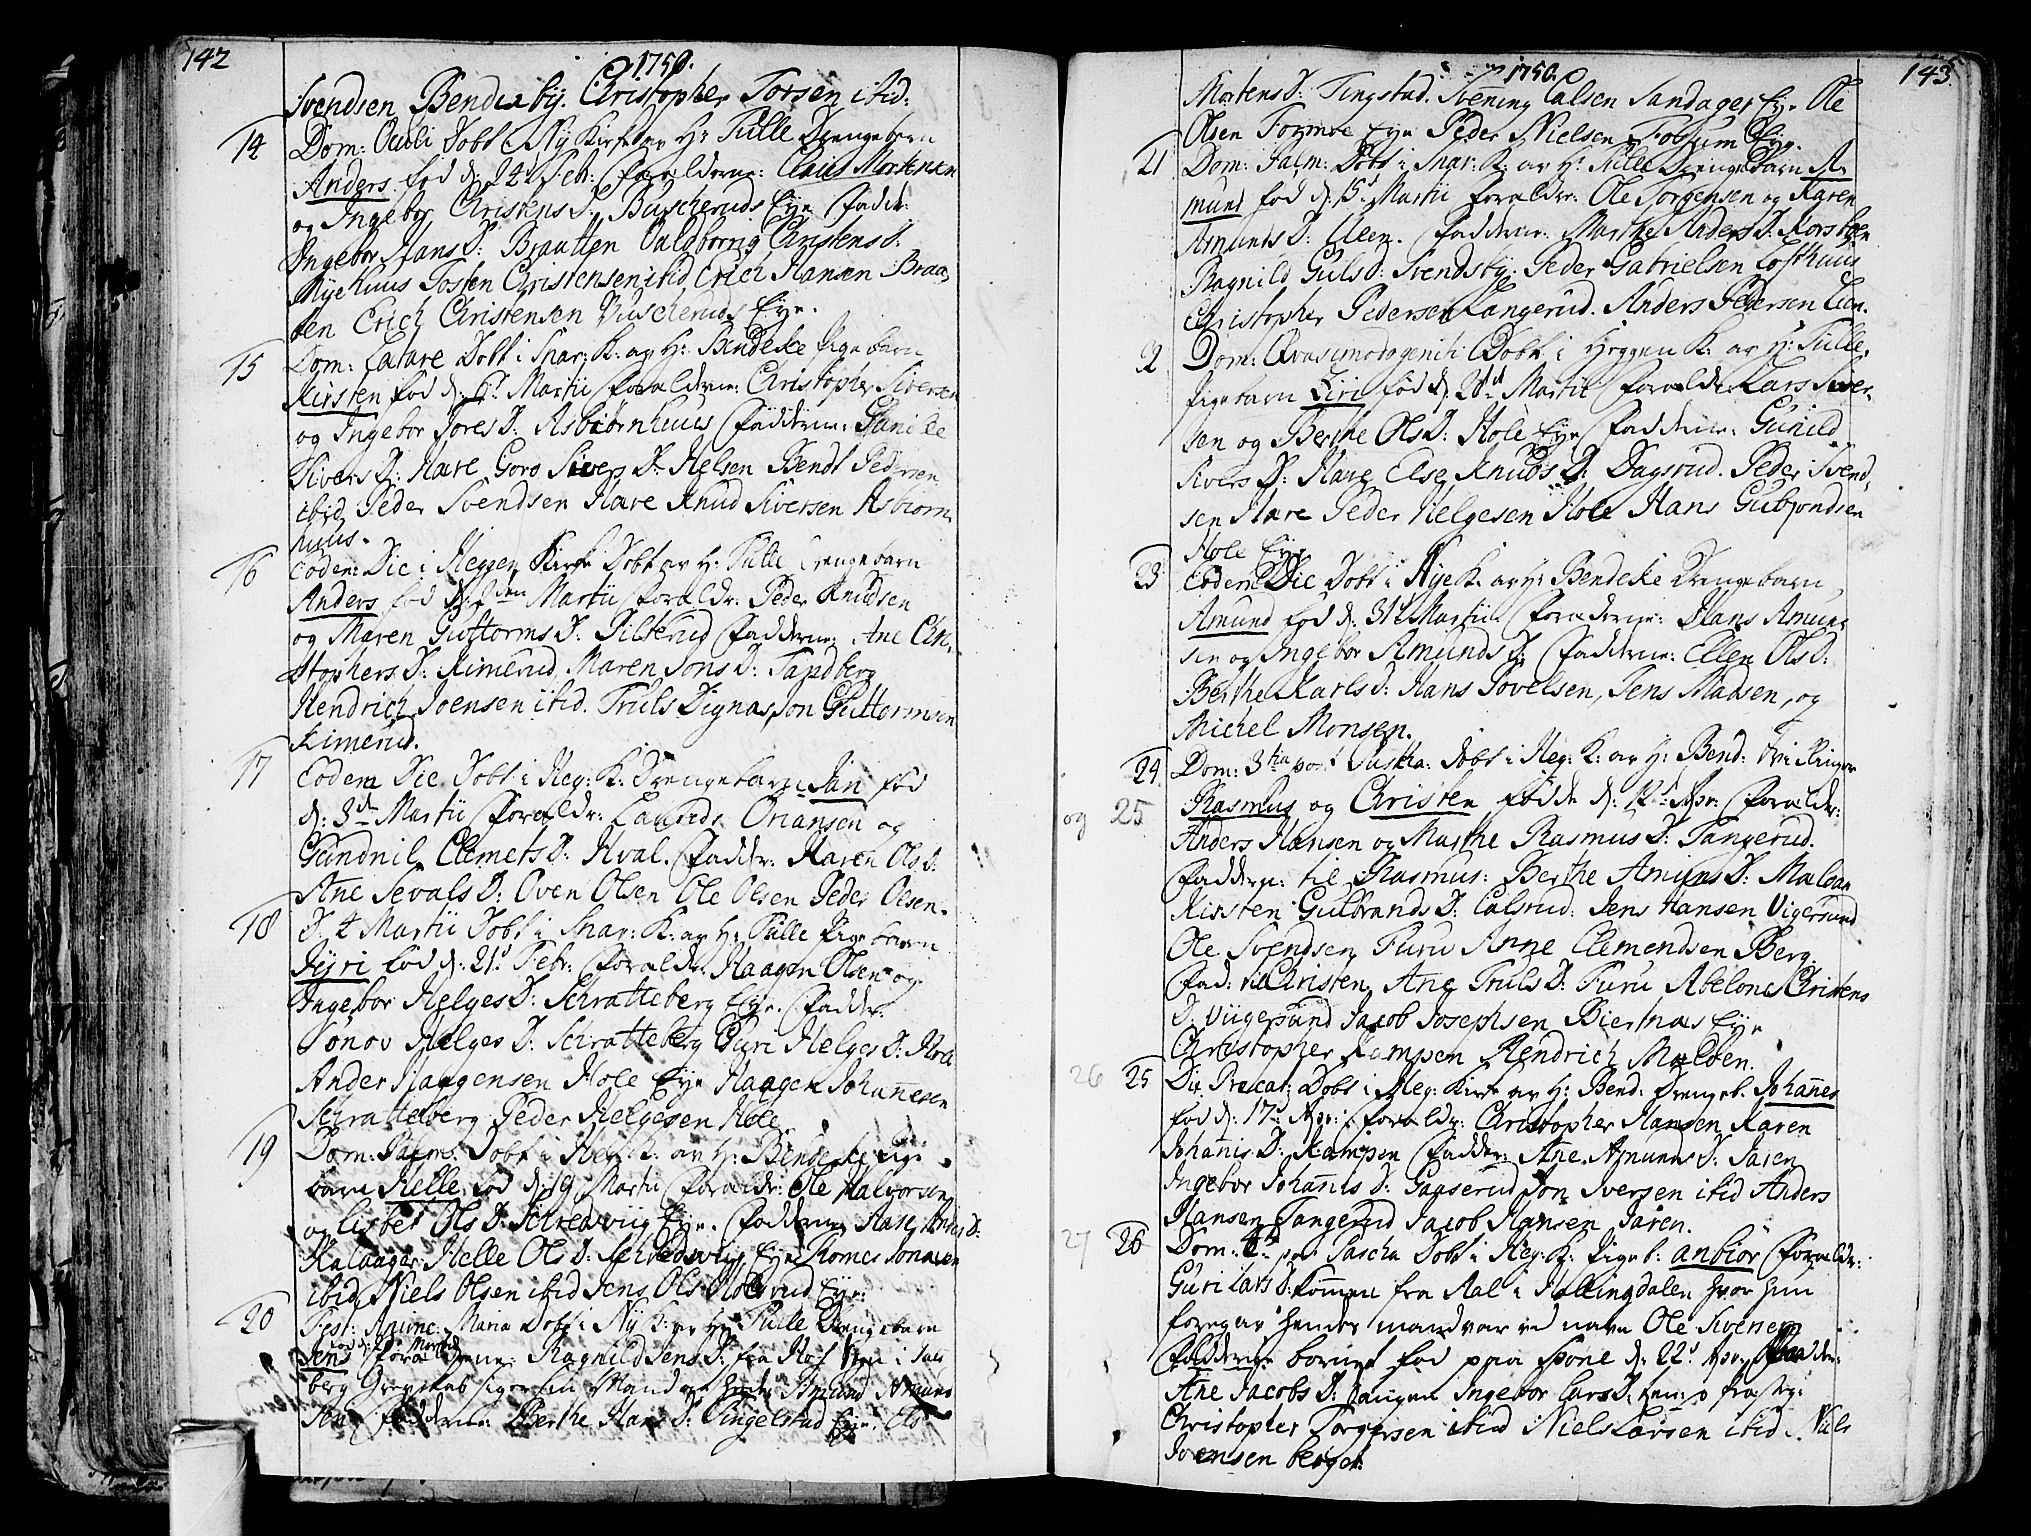 142
1750.
Svendsen Benderby. Christopher Torsen ibid:
14 Dom: Oculi Döbt i Ny Kirke av H: Tulle Drengebarn
Anders fød d: 24 Febr: Forælderne: Claus Mortensen
og Ingebor Christens D: Buscheruds Eye Fadd:
Ingebor Hans D: Braatten Valgborrig Christens D:
Myehuus Tosten Christensen ibid Erich Hansen Braa-
ten Erich Christensen Buscheruds Eye.
15 Dom: Lætare Döbt i Snar: K: av H: Bendeke Pigebarn
Kirsten fød d: Martii Forælderne: Christopher Siversen
og Ingebor Tores D: Asbiörnhuus Fadderne: Gunild
Sivers D: Hare Goro Sivers D: Helsen Bendt Pedersen
ibid Peder Svendsen Hare Knud Siversen Asbiörn-
huus.
16 Eodem Die i Heggen Kirke Döbt av H: Tulle Drengebarn
Anders fød d: Martii Forældr: Peder Knudsen
og Maren Guttorms D: Pilterud Fadderne: Ane Chri-
stophers D: Kimerud, Maren Jons D: Tandberg
Hendrich Joensen ibid. Truls Dignas, Jon Guttormsen
Kimerud.
17 Eodem Die Döbt i Heg: K: Drengebarn Jan fød
d: 3de Martii Forældr: Lauridz Oriansen og
Gundnil Clemets D: Hval. Fadder: Karen Ols D:
Ane Sevals D: Oven Olsen Ole Olsen Peder Olsen.
18 D. 4 Martii Döbt i Snar: K: av H: Tulle Pigebarn
Jyri fød d: 21d Febr: Forældr: Haagen Olsen og
Ingebor Helges D: Schratteberg Eye. Fadder:
Sönov Helges D: Schratteberg Guri Helges D: Hole
Ander Haagensen Hole Eye Haagen Johannesen
Schratteberg Peder Helgesen Hole
19 Dom: Palm: Döbt i Heg: K: av H: Bendeke Pige
barn Helle fød d: 19 Martii Forældr: Ole Halvorsen
og Lisbet Ols D: Schredsviig Eye. Fadderne Aase Anders D:
Kalager Helle Ols D: Schredsviig Eye Thomes Jonasen
ibid Niels Olsen ibid Jens Ols: Eye:
20 Fest: Anunc: Maria Döbt i Ny K: av H: Tulle Drengebarn
fød d: Martii
Jens Forældrene: Ragnild Jens D: fra Hof i Jarls
berg Grevskab siger sin Mand Amund Amund-
sen Fadderne: Berthe Hans D: Singelstad Eye. Els
1750.
143
Mortens D: Tingstad. Svening Calsen Sandager Eye Ole
Olsen Formoe Eye Peder Nielsen Fossum Eye.
21 Dom: Palm: Döbt i Snar: K: av H: Tulle Drengebarn A-
mund fød d: 15d Martii Forældr: Ole Torgensen og Karen
Amunds D: Ulleen. Fadderne: Marthe Anders D: Korsböen
Ragnild Guls D: Svendsby. Peder Gabrielsen Lofthuus
Christopher Pedersen Langerud. Anders Pedersen Lien.
22 Dom: Qvasimodogeniti Döbt i Heggen K: av H: Tulle
Pigebarn Siri fød d: 20de Martii Forældr: Lars Siver-
sen og Berthe Ols D: Hole Eye Fadderne: Gunild
Sivers D: Hare Else Knuds D: Dagsrud. Peder Svend-
sen Hare Peder Helgesen Hole Hans Gubjondsen
Hole Eye
23 Eodem Die Döbt i Nye K: av H: Bendeke Drengebarn
Amund fød d: 31d Martii Forælderne: Hans Amund-
sen og Ingebor Amunds D: Fadderne: Ellen Ols D:
Berthe Karls D: Hans Jovelsen, Jens Madsen, og
Michel Monsen.
24 Dom: 3tia post Pascha: Döbt i Heg: K: av H: Bend: Tvillinger
og 25 Rasmus og Christen födde d: 12d Apr: Forældr:
Anders Hansen og Marthe Rasmus D: Tangerud.
Fadderne: til Rasmus: Berthe Amunds D: Maleben
Kirsten Gulbrands D: Calsrud: Jens Hansen Vigersund
Ole Svendsen Furu Anne Clemendsen Berg.
Fad: til Christen, Ane Truls D: Furu Abelone Christens
D: Viigersund Jacob Josephsen Biertnæs Eye
Christopher Kampen Hendrich Maleben.
26 25 Die Precat: Döbt i Heg: Kirke av H: Bend: Drengeb. Johannes
fød d: 17d Apr: Forældr: Christopher Hansen Karen
Johannis D: Kampen Fadder: Ane Amunds D: Jaren
Ingebor Johannis D: Gaaserud Jon Iversen ibid Anders
Hansen Tangerud Jacob Hansen Jaren.
27 26 Dom: 4ta post Pascha Döbt i Heg: K: Pigeb: Anbiör Forældr:
Guri Lars D: kommen fra Aal i Hallingdalen hvor hun
foregav hendes mand var ved navn Ole Svensen
Fadderne barnet fød paa Spone d: 22d Apr: Fadder:
Ane Jacobs D: Haugen Ingebor Lars D: fra
Christopher Torgersen ibid Niels Larsen ibid. Niels
Svensen berget